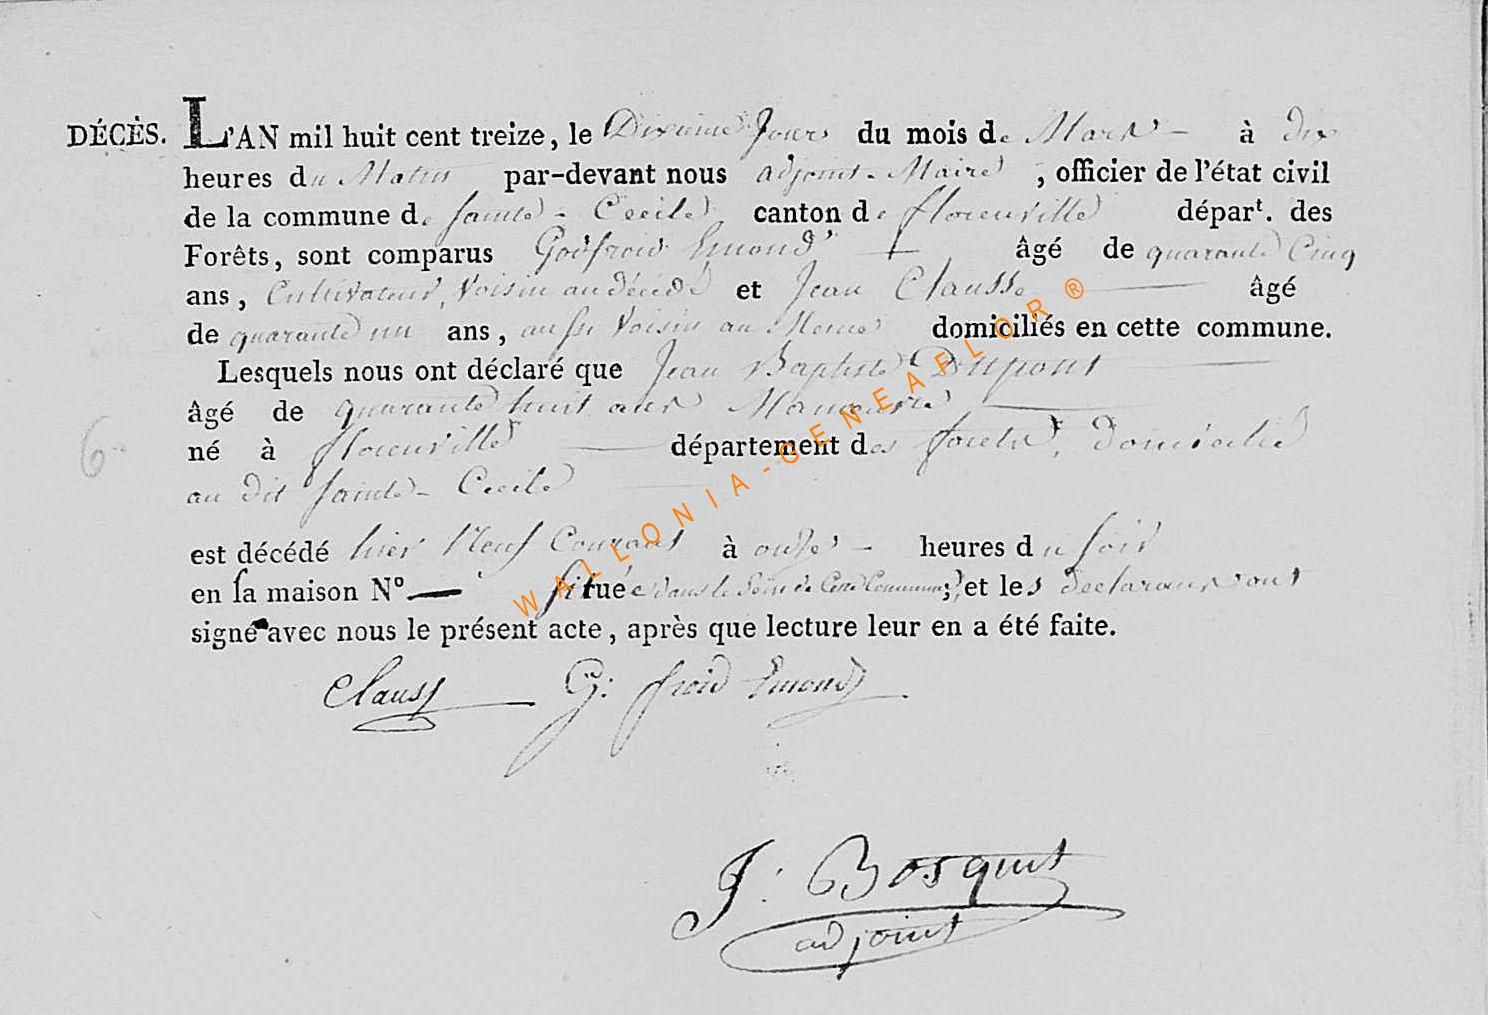 DÉCÈS. L'AN mil huit cent treize, le Dixieme Jour du mois de Mars - à dix
heures du Matin par-devant nous adjoint-Maire, officier de l'état civil
de la commune de Sainte-Cecile canton de florenvilleépart. des
Forêts, sont comparus Godfroid Emond âgé de quarante Cinq
ans, Cultivateur, Voisin au décédé et Jean Clausse âgé
de quarante un ans, aussi Voisin au Meme domiciliés en cette commune.
Lesquels nous ont déclaré que Jean Baptiste Dupont
âgé de quarante huit ans Manoeuvre
né à florenville département des forets, domicilié
au dit Sainte-Cecile
est décédé hier Neuf Courant à onze - heures du soir
en sa maison N° — située dans le Sein de Cette Commune; et les declarans ont
signé avec nous le présent acte, après que lecture leur en a été faite.
6
Clauss G: froid Emond
J: Bosquet
adjoint
WALLONIA-GENEAFLOR®